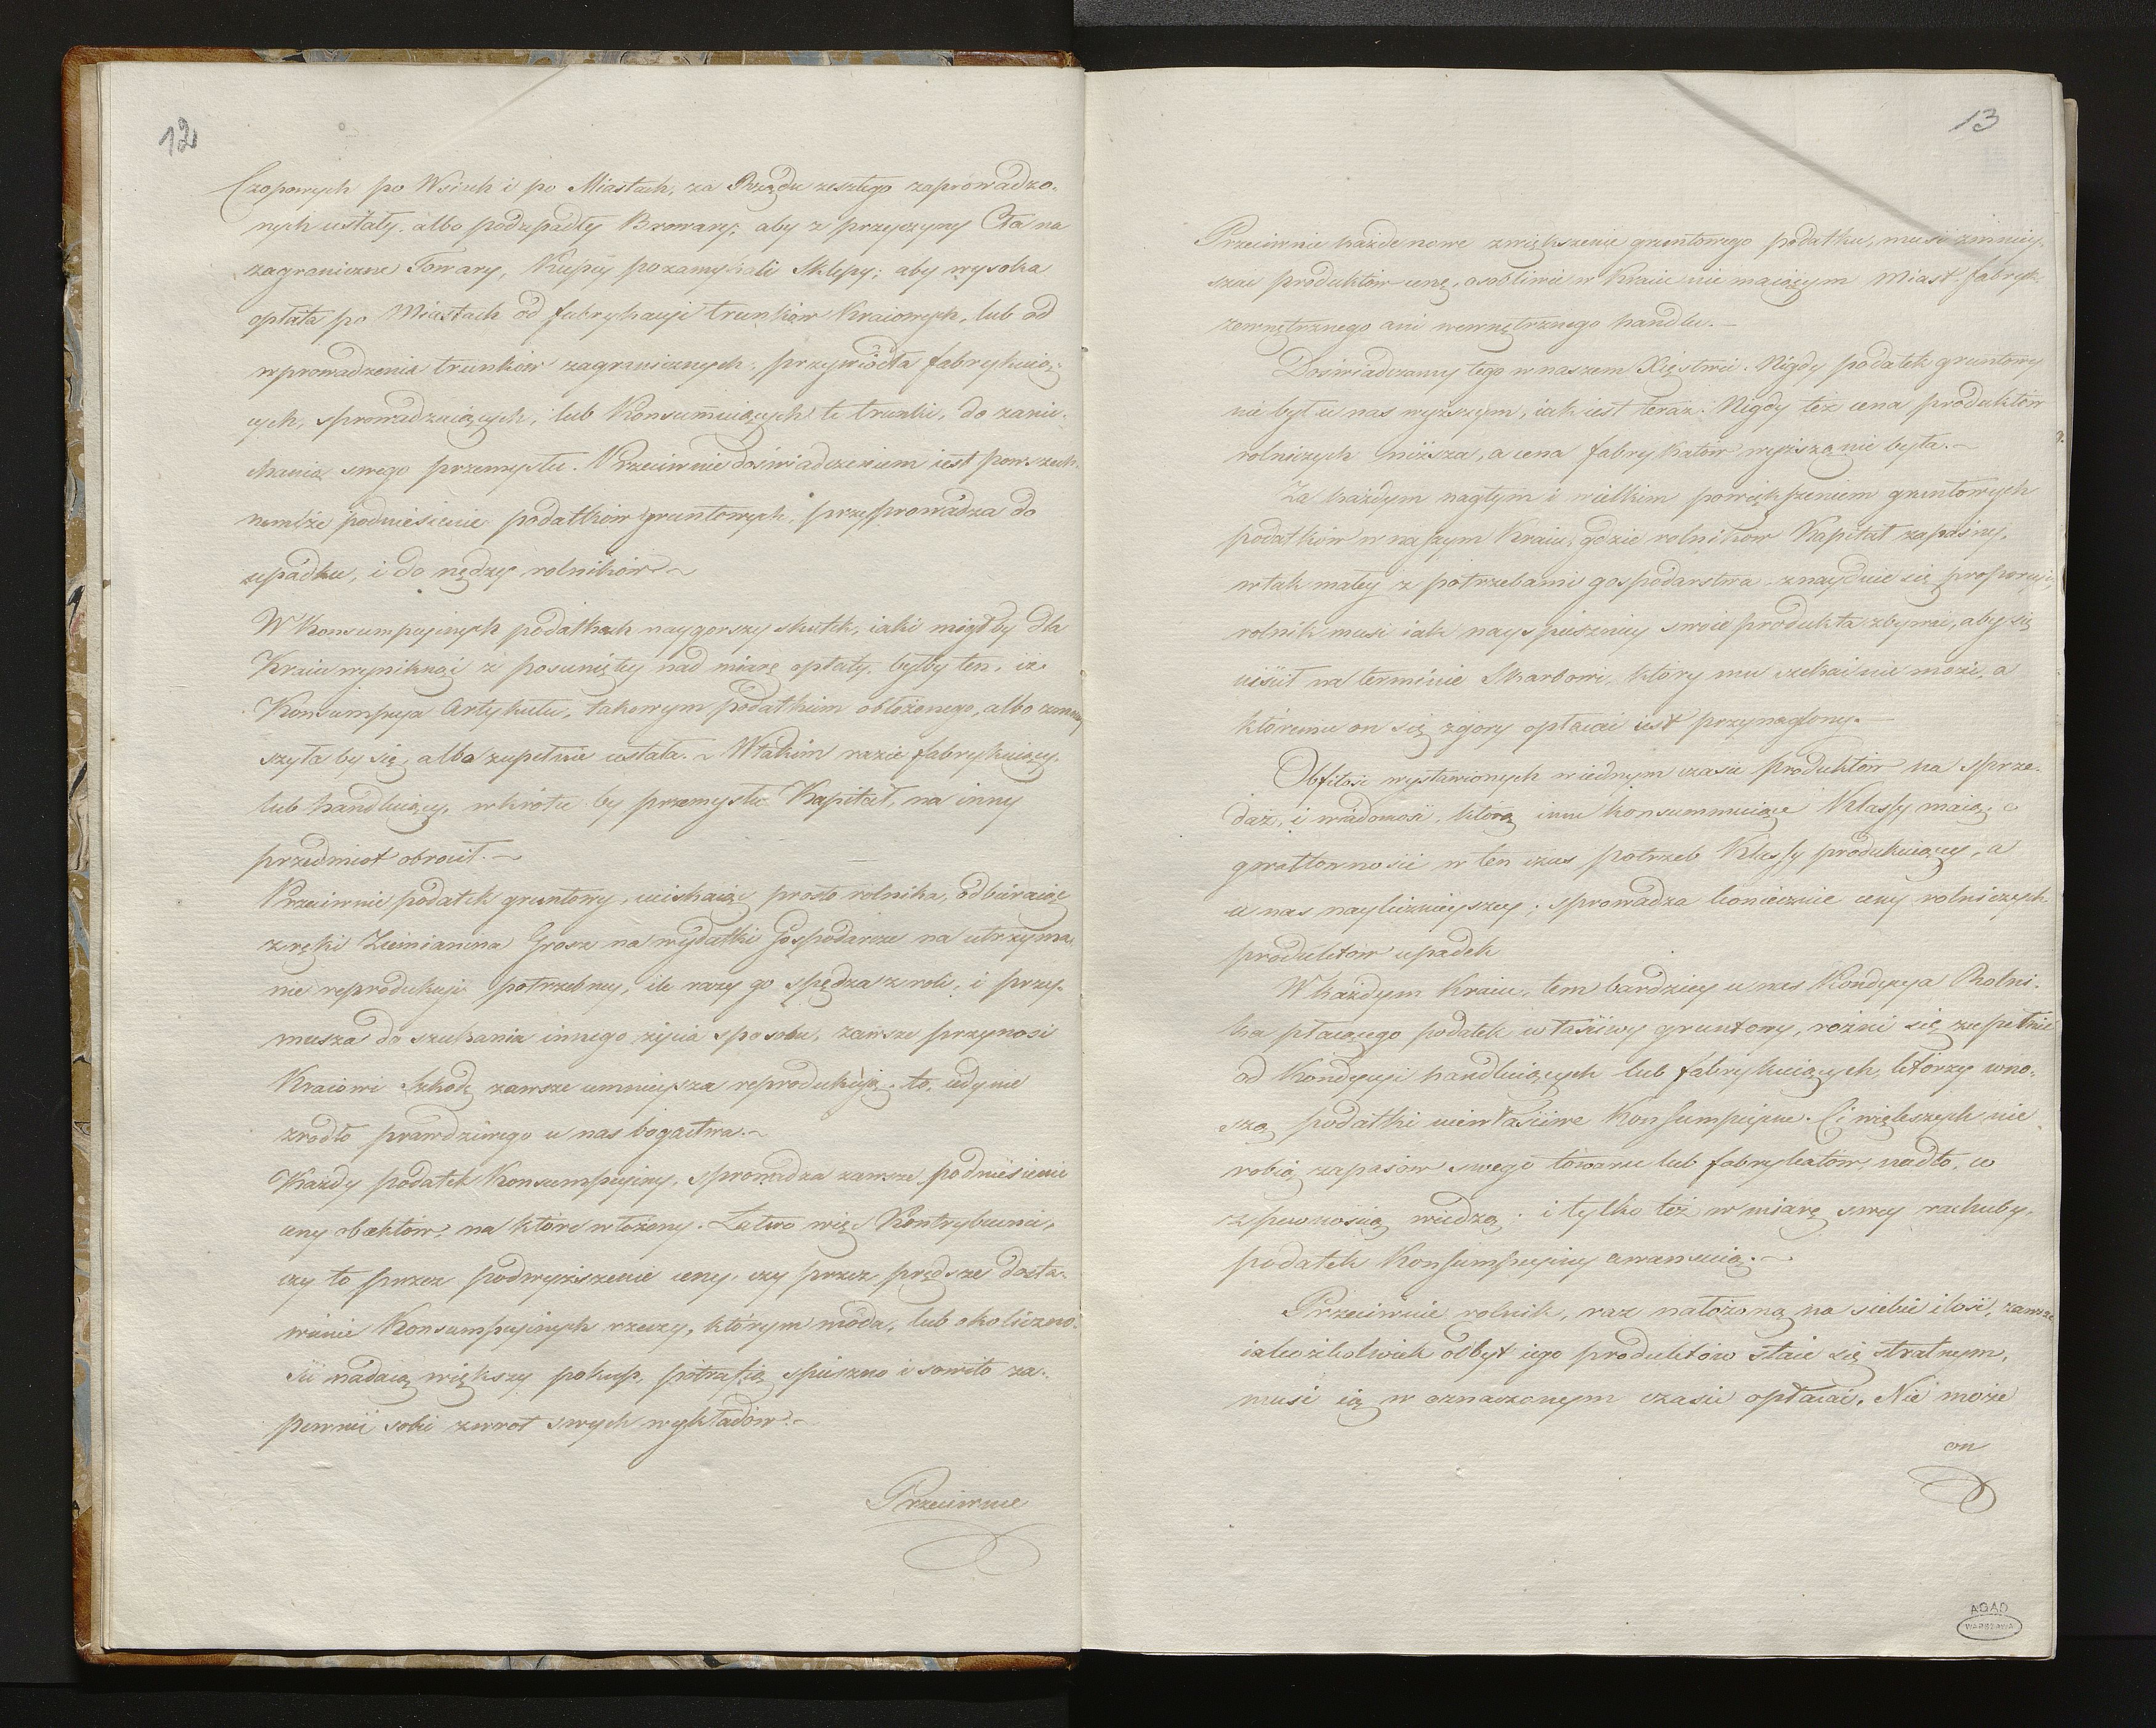 12
Czopowych po Wsiach i po Miastach, za Rządu zeszłego zaprowadzo-
nych ustały, albo podupadły Browary; aby z przyczyny Cła na
zagraniczne Towary, Kupcy pozamykali Sklepy; aby wysoka
opłata po Miastach od fabrykacyi trunków Kraiowych, lub od
wprowadzenia trunków zagranicznych, przywiodła fabrykuią-
cych, sprowadzaiących, lub Konsumuiących te trunki, do zanie-
chania swego przemysłu. Przeciwnie doświadczeniem iest powszech-
nem, że podniesienie podatków gruntowych, przeprowadza do
upadku, i do nędzy rolników.~
W Konsumpcyinych podatkach naygorszy skutek, iaki mógłby dla
Kraiu wyniknąć z posuniętey nad miarę opłaty, byłby ten, iż
Konsumpcya Artykułu, takowym podatkiem obłożonego, albo zmniey
szyła by się, albo zupełnie ustała. ~ W takim razie fabrykuiący,
lub handluiący, wkrótce by przemysłu Kapitał, na inny
przedmiot obrócił.~
Przeciwnie podatek gruntowy, uciskaiąc prosto rolnika, odbieraiąc
z ręki Ziemianina Grosz na wydatki Gospodarcze na utrzyma-
nie reprodukcyi potrzebny, ile razy go spędza z roli, i przy-
musza do szukania innego życia sposobu, zawsze przynosi
Kraiowi Szkodę zawsze umnieysza reprodukcyią, to iedyne
zrodło prawdziwego u nas bogactwa.~
Każdy podatek Konsumpcyiny, sprowadza zawsze podniesienie
ceny obiektów, na które włożony. Łatwo więc Kontrybuenci,
czy to przez podwyższenie ceny, czy przez prędsze dosta-
wianie Konsumpcyinych rzeczy, którym moda, lub okoliczno-
ści nadaią większy pokup, potrafią spieszno i sowito za-
pewnić sobie zwrot swych wykładów.~
Przeciwnie
13
Przeciwnie każde nowe zwiększenie gruntowego podatku, musi zmniey-
szać produktów cenę, osobliwie w Kraiu nie maiącym Miast, fabryk
zewnętrznego ani wewnętrznego handlu.~
Doświadczamy tego w naszem Xięstwie. Nigdy podatek gruntowy
nie był u nas wyższym, iak iest teraz. Nigdy też cena produktów
rolniczych niższą, a cena fabrykatów wyższą nie była.~
Za każdym nagłym i wielkim powiększeniem gruntowych
podatków w naszym Kraiu, gdzie rolników Kapitał zapaśny,
w tak małey z potrzebami gospodarstwa znayduie się proporcyi,
rolnik musi iak nayspieszniey swoie produkta zbywać, aby się
uiścił na terminie Skarbowi, który mu czekać nie może, a
któremu on się z góry opłacać iest przynaglony.~
Obfitość wystawionych w iednym czasie produktów na sprze-
daż, i wiadomość, którą inne konsummuiące Klassy maią, o
gwałtowności w ten czas potrzeb Klassy produkuiącey, a
u nas nayliczniejszey; sprowadza koniecznie ceny rolniczych
produktów upadek
W każdym Kraiu, tem bardziey u nas Kondycya Rolni-
ka płacącego podatek właściwy gruntowy, rożni się zupełnie
od Kondycyi handluiących lub fabrykuiących, którzy wno-
szą podatki niewłaściwe Konsumpcyine. Ci większych nie
robią zapasów swego towaru lub fabrykatów, nadto, co
z pewnością wiedzą; i tylko też w miarę swey rachuby,
podatek Konsumpcyiny awansuią.~
Przeciwnie rolnik, raz nałożoną na siebie ilość, zawsze
iakożkolwiek odbyt iego produktów staie się stratnym,
musi ią w oznaczonym czasie opłacać. Nie może
on
AGAD
WARSZAWA